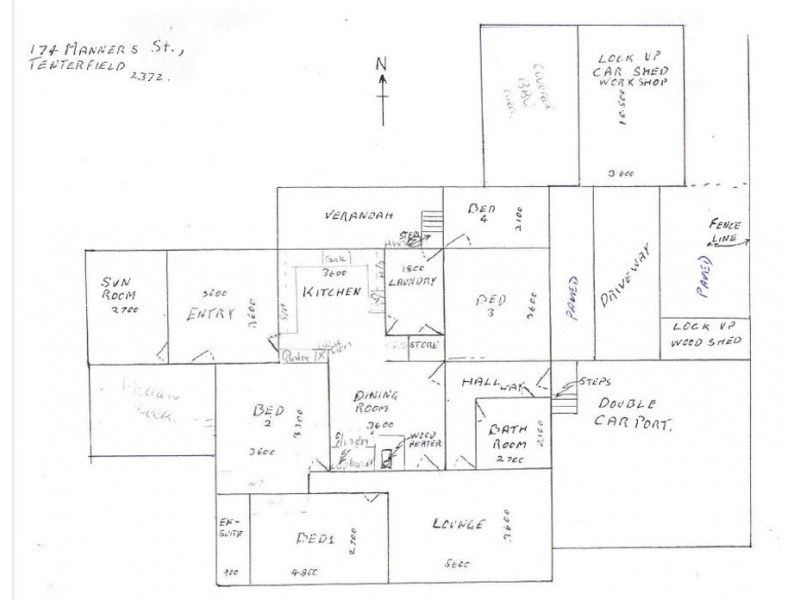 174 MANNERS ST.,
TENTERFIELD
2372.
N
COVERED
BBQ
AREA
LOCK UP
CAR SHED
WORKSHOP
10.500
3.600
VERANDAH
STEPS
BED
4
2100
FENCE
LINE
PAVED
DRIVEWAY
PAVED
SUN
ROOM
2700
3600
ENTRY
3600
SINK
3600
KITCHEN
1800
LAUNDRY
BED
3
3600
LOCK UP
WOOD SHED
Pantry
STORE
HALL WAY
STEPS
DOUBLE
CAR PORT.
BED
2
3300
3600
DINING
ROOM
3600
WOOD
HEATER
BATH
ROOM
2700
2100
EN-
SUITE
900
BED 1
2700
4.800
LOUNGE
3600
5600